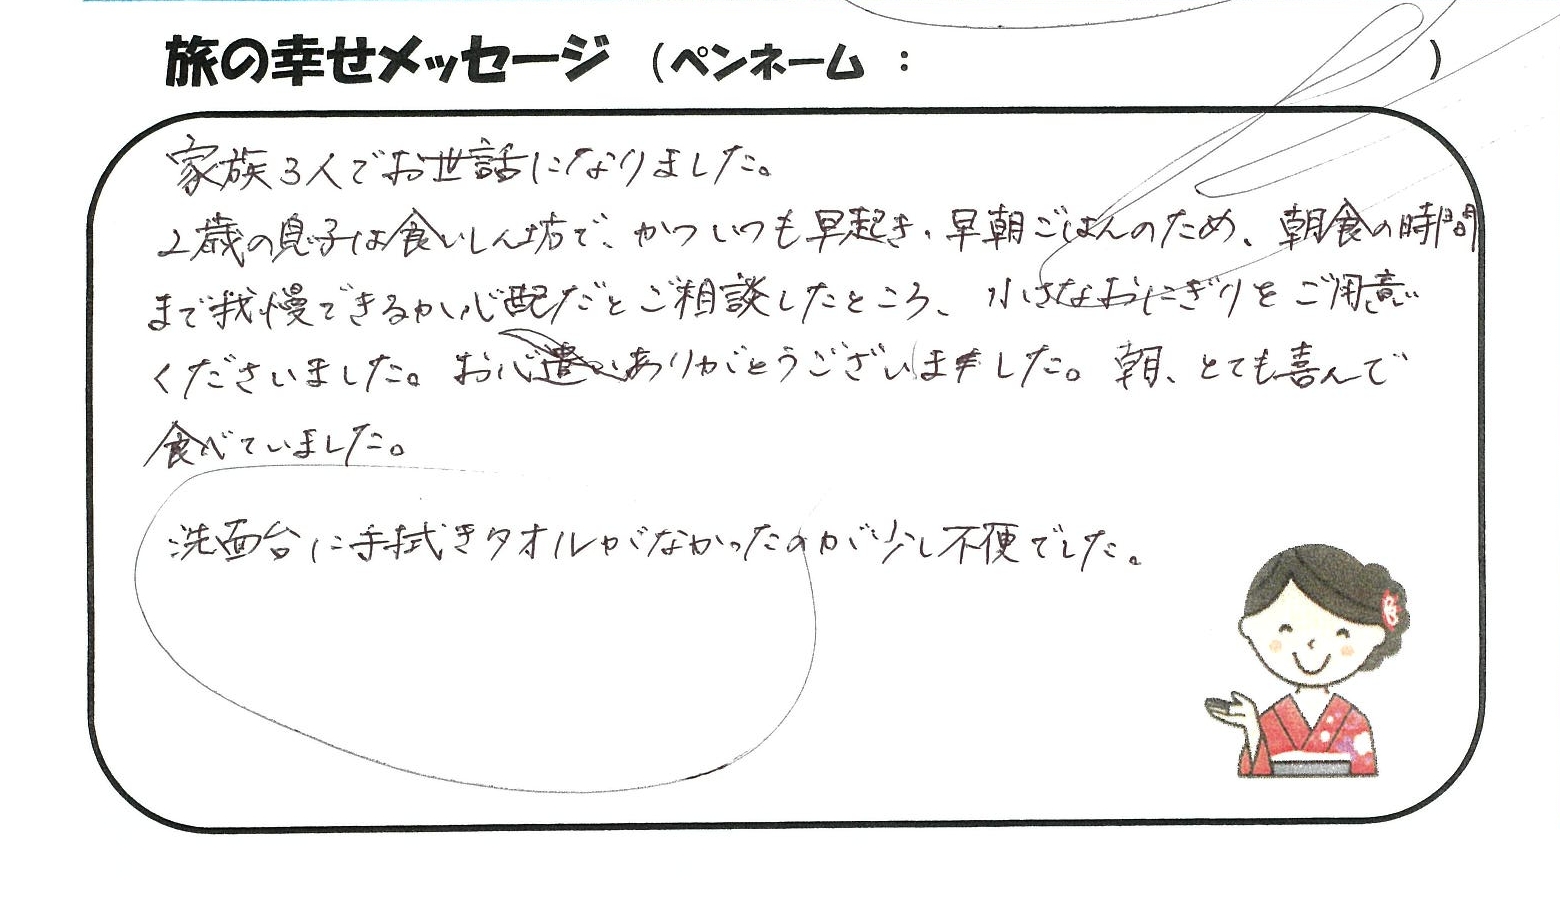 旅の幸せメッセージ （ペンネーム ： ）
家族3人でお世話になりました。
2歳の息子は食いしん坊で、かついつも早起き、早朝ごはんのため、朝食の時間
まで我慢できるか心配だとご相談したところ、小さなおにぎりをご用意
くださいました。お心遣いありがとうございました。朝、とても喜んで
食べていました。
洗面台に手拭きタオルがなかったのが少し不便でした。